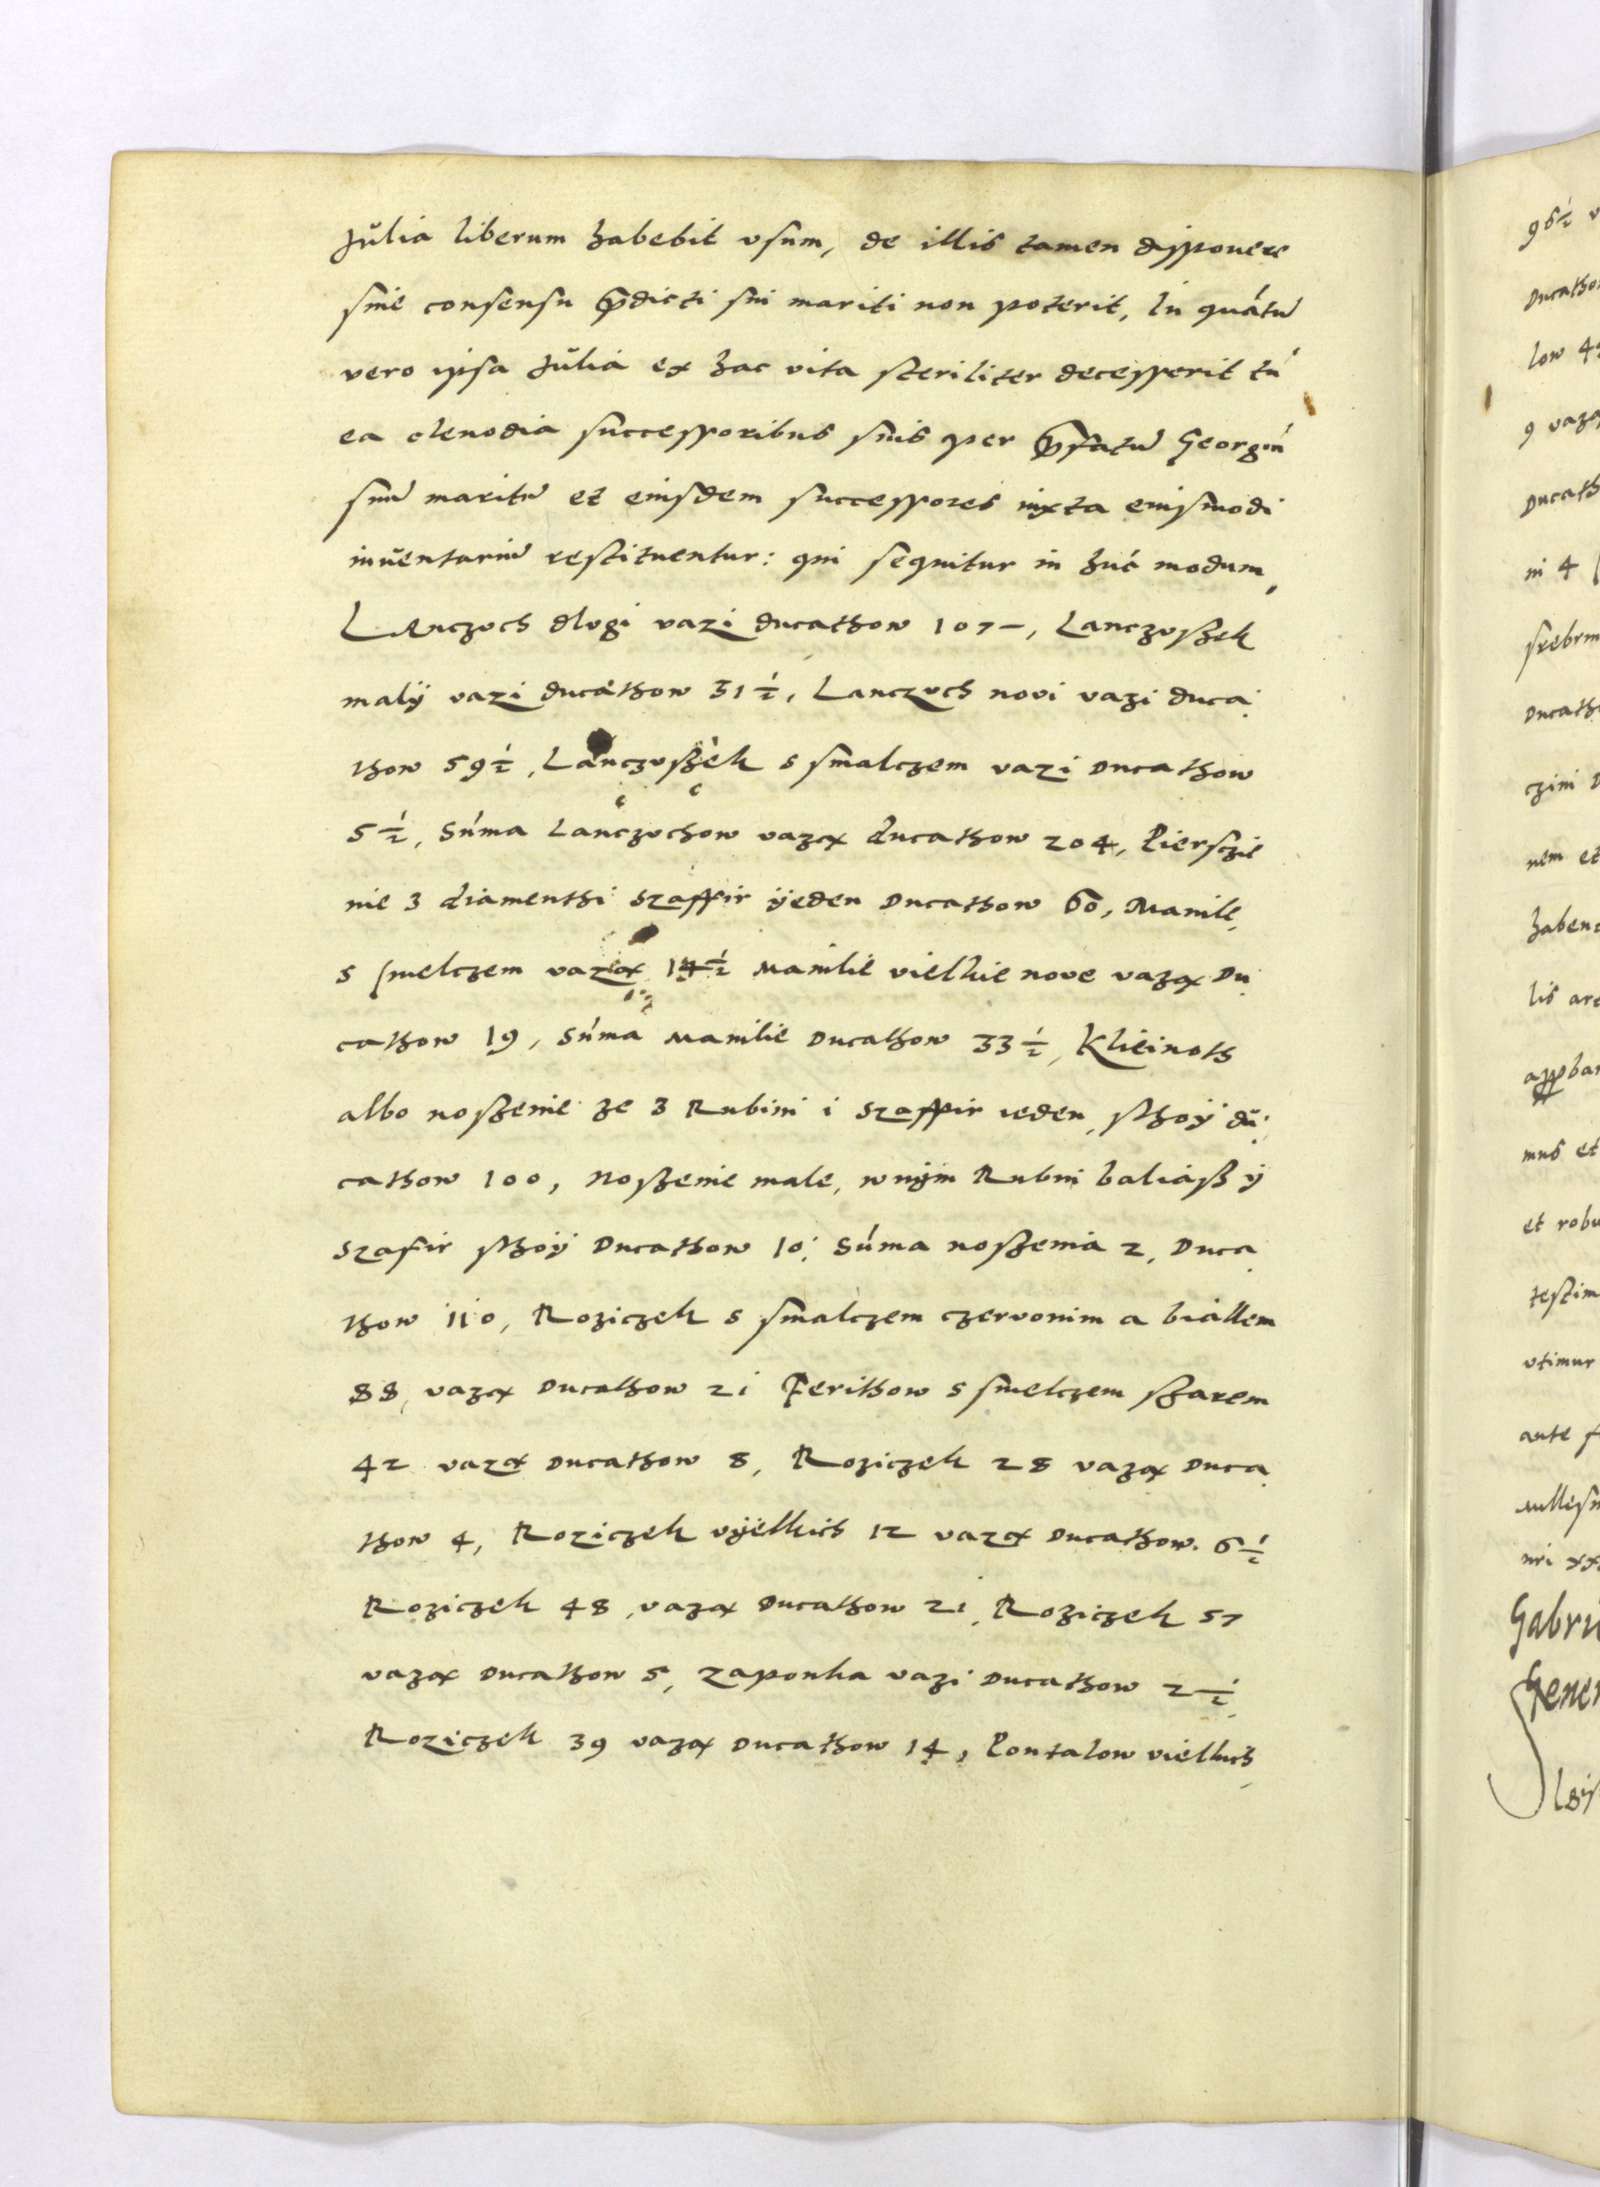 Jŭlia liberum habebit vsum, de illis tamen disponere
sine consensu p̄dicti sui mariti non poterit, In quātū
vero ipsa Jŭlia ex hac vita steriliter decesserit tū
ea clenodia successoribus suis per p̄fatū Georgiū
suū maritū et eiusdem successores iuxta eiusmodi
inŭentariū restituentur: qui sequitur in hūc modum,
Lanczuch dlugi vazi ducathow 107–, Lanczuszek
malÿ vazi ducathow 31½, Lanczuch novi vazi duca
thow 59½, Lanczuszek s smalczem vazi Ducathow
5½, Sūma lanczuchow vazą ducathow 204, Pierszcie
nie 3 diamenthi Szaffir ÿeden Ducathow 60, Manile
s smelczem vazą 14½ Manilie vielkie nove vazą Du
cathow 19, Sūma Manilie Ducathow 33½, Klieinoth
albo noszenie ze 3 Rubini i szaffir ieden, sthoÿ dŭ
cathow 100, Noszenie male, w nÿm Rubin baliasz ÿ
szafir sthoÿ Ducathow 10, Sūma noszenia 2, Duca
thow 110, Roziczek s smalczem czervonim a biallem
88, vazą Ducathow 21 Ferithow s smelczem szarem
42 vazą Ducathow 8, Roziczek 28 vazą Duca
thow 4, Roziczek vÿelkich 12 vazą Ducathow. 6½
Roziczek 48, vazą Ducathow 21, Roziczek 57
vazą Ducathow 5, Zaponka vazi Ducathow 2½
Roziczek 39 vazą Ducathow 14, Pontalow vielkich
96½
Ducathow
low
9
Ducath
ni 4
srebrn
Ducath
czini
nem et
lis
mus et
et robu
testim
vtimur
ante
nri
Gabri
Gener